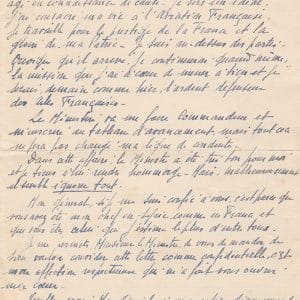 agi en connaissance de cause. Je sers un idéal.
J'ai consacré ma vie à l'Aviation Française.
Je travaille pour le prestige de la France et la
gloire de ma Patrie. Je suis au-dessus des partis.
Quoiqu'il arrive, je continuerai quand même
la mission que j'ai à cœur de mener à bien et je
serai, demain comme hier, l'ardent défenseur
des Ailes Françaises.
Le Ministre va me faire Commandeur et
m'inscrire au tableau d'avancement, mais tout cela
ne fera pas changer ma ligne de conduite.
Dans cette affaire, le Ministre a été très bon pour moi
et je tiens à lui rendre hommage. Mais, malheureusement
il semble ignorer tout.
Mon Général, si je me suis confié à vous c'est parce que
vous avez été mon chef en Syrie comme en France et
que vous êtes celui que j'estime le plus d'entre tous.
Je me permets, Monsieur le Ministre, de vous demander de
bien vouloir considérer cette lettre comme confidentielle, c'est
mon affection respectueuse qui m'a fait vous ouvrir
mon cœur.